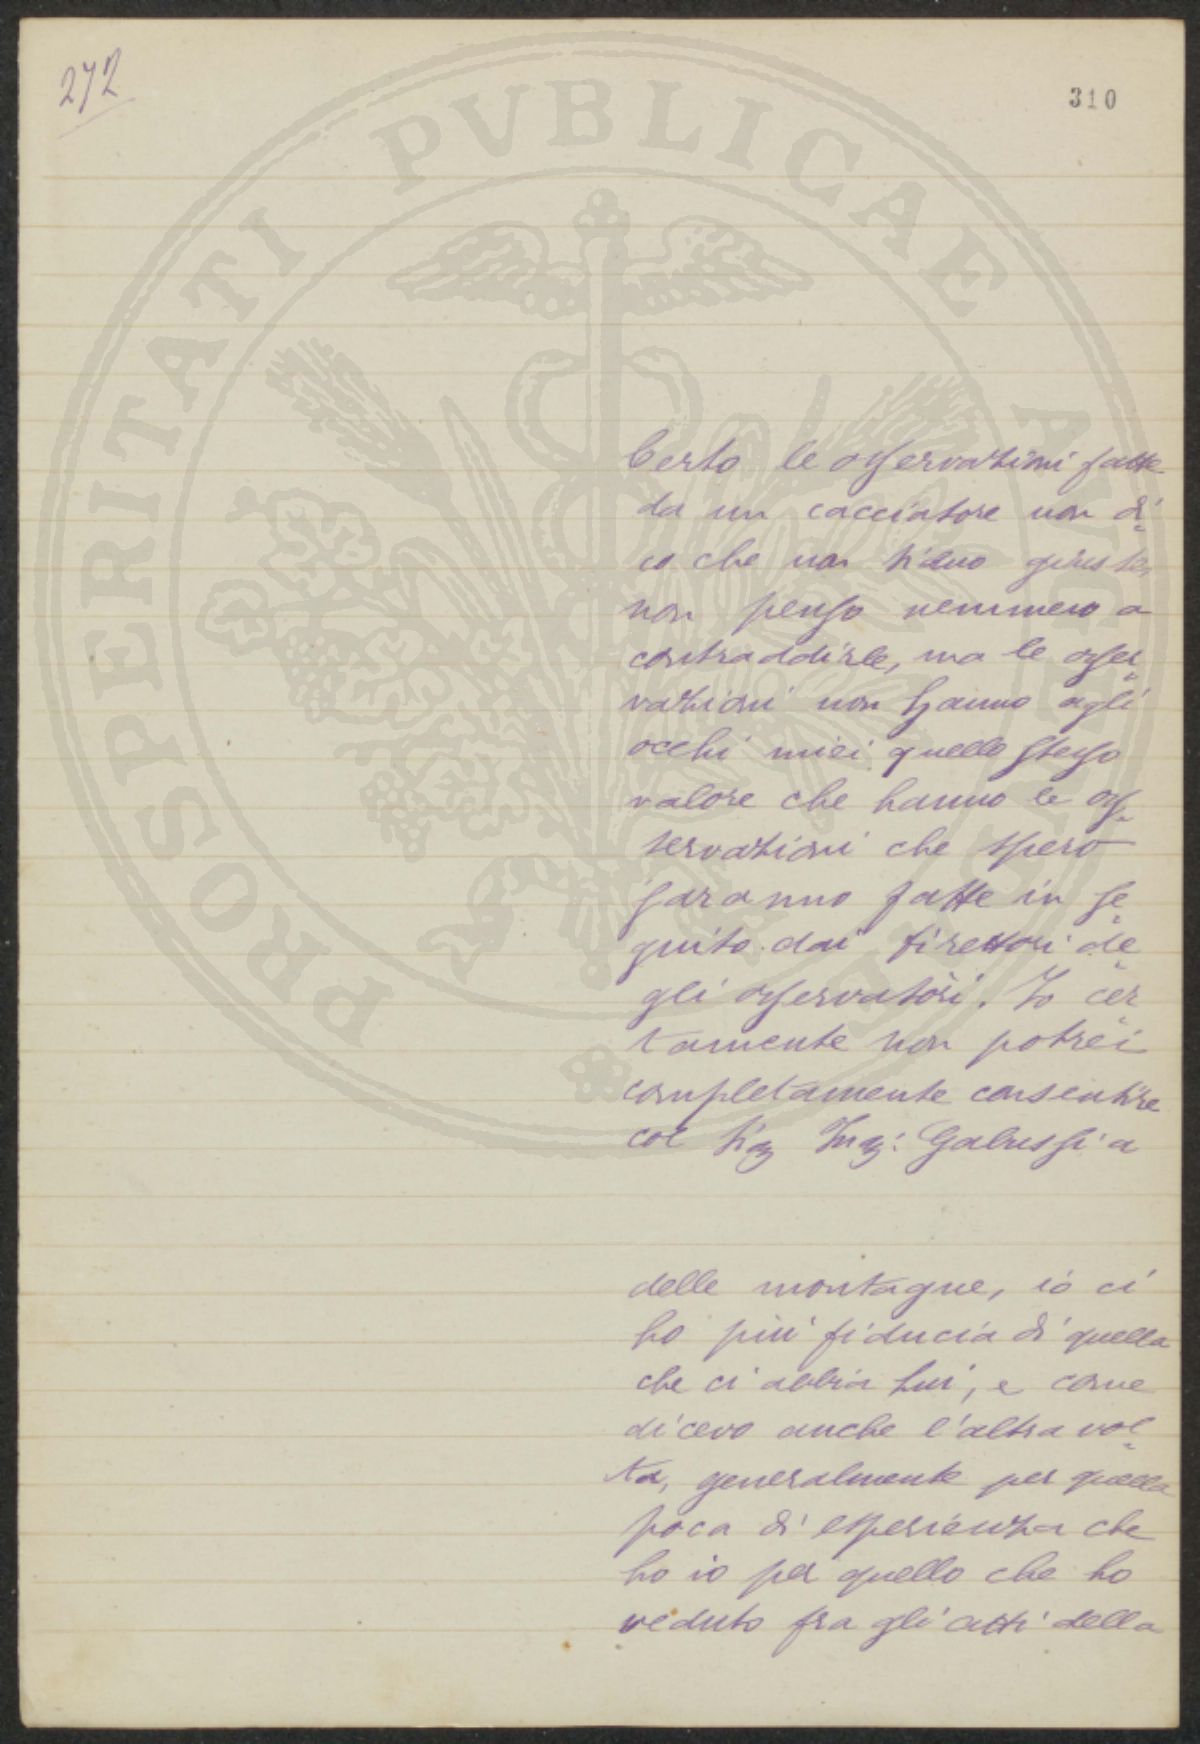 272
310
PROSPERITATI PVBLICAE AVGENDAE
Certo le osservazioni fatte
da un cacciatore non di=
co che non siano giuste,
non penso nemmeno a
contraddirle, ma le osser=
vazioni non hanno agli
occhi miei quello stesso
valore che hanno le os=
servazioni che spero
saranno fatte in se=
guito dai direttori de=
gli osservatori. Io cer=
tamente non potrei
completamente consentire
col Sig Ing: Galussi a
delle montagne, io ci
ho più fiducia di quella
che ci abbia lui, e come
dicevo anche l'altra vol=
ta, generalmente per quella
poca di esperienza che
ho io per quello che ho
veduto fra gli atti della